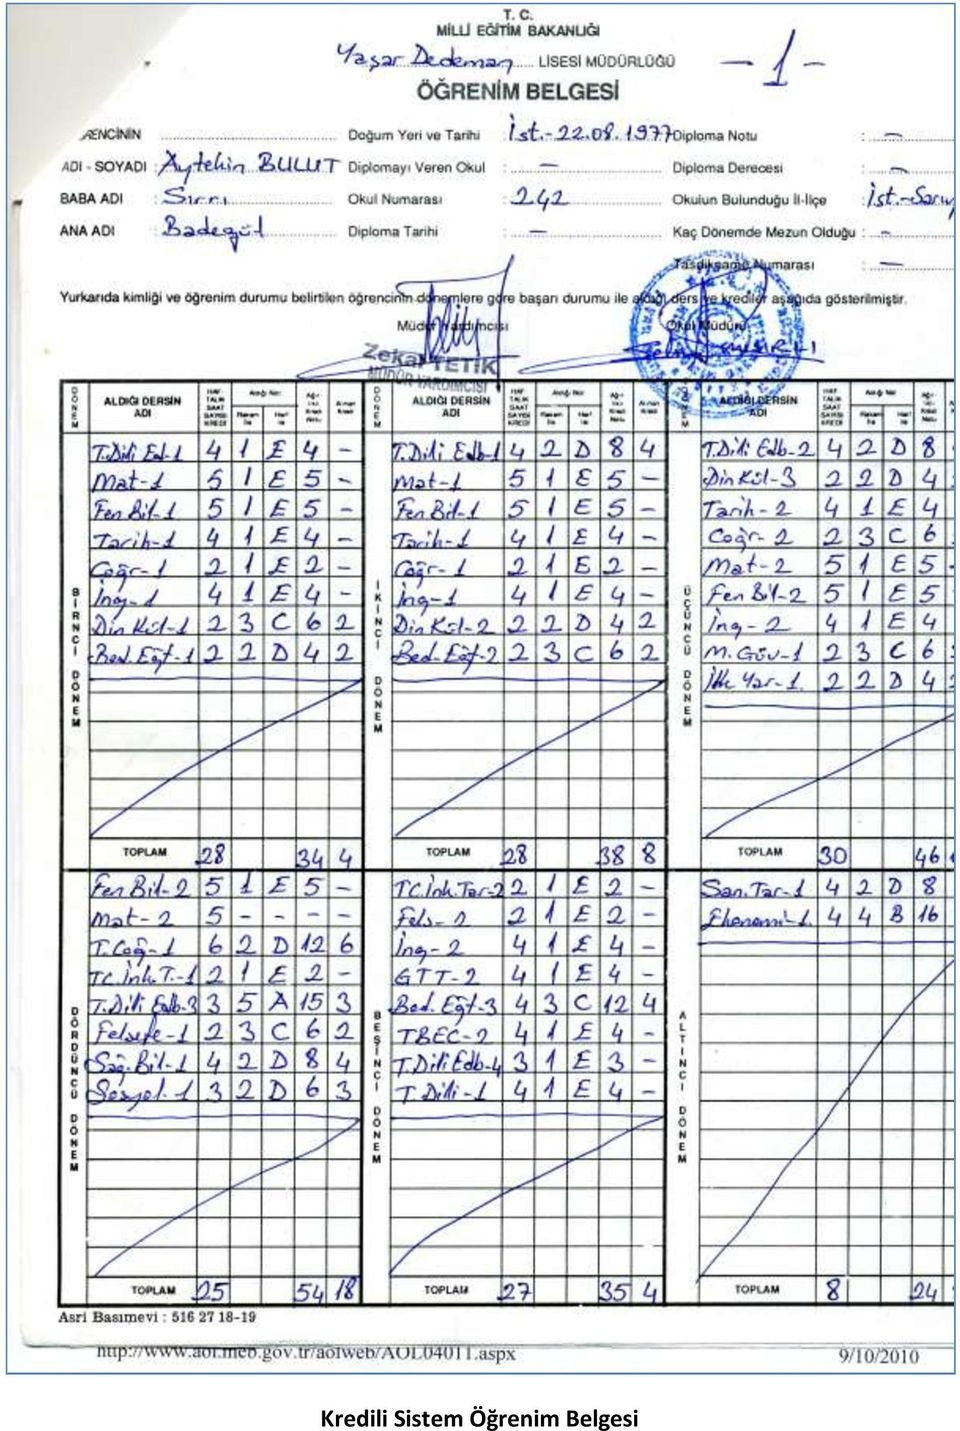 T. C.
MİLLİ EĞİTİM BAKANLIĞI
Yaşar Dedeman LİSESİ MÜDÜRLÜĞÜ — 1 —
ÖĞRENİM BELGESİ
RENCİNİN Doğum Yeri ve Tarihi : İst.-22.08.1977 Diploma Notu : —
ADI - SOYADI : Aytekin BULUT Diplomayı Veren Okul : — Diploma Derecesi : —
BABA ADI : Sırrı Okul Numarası : 242 Okulun Bulunduğu İl-İlçe : İst.-Sarıy
ANA ADI : Badegül Diploma Tarihi : — Kaç Dönemde Mezun Olduğu : —
Tasdikname Numarası : —
Yurkarıda kimliği ve öğrenim durumu belirtilen öğrencinin dönemlere göre başarı durumu ile aldığı ders ve krediler aşağıda gösterilmiştir.
Müdür Yardımcısı Okul Müdürü
Zekai TETİK
MÜDÜR YARDIMCISI
DÖNEM ALDIĞI DERSİN ADI HAFTALIK SAAT SAYISI KREDİ Aldığı Not Rakam Harf DÖNEM ALDIĞI DERSİN ADI HAFTALIK SAAT SAYISI KREDİ Aldığı Not Rakam Harf ALDIĞI DERSİN ADI HAFTALIK SAAT SAYISI KREDİ Aldığı Not Rakam Harf
BİRİNCİ DÖNEM
T.Dili Ed-1 4 1 E 4 -
Mat-1 5 1 E 5 -
Fen Bil-1 5 1 E 5 -
Tarih-1 4 1 E 4 -
Coğr-1 2 1 E 2 -
İng-1 4 1 E 4 -
Din Kül-1 2 3 C 6 2
Bed.Eğt-1 2 2 D 4 2
TOPLAM 28 34 4
İKİNCİ DÖNEM
T.Dili Edb-1 4 2 D 8 4
Mat-1 5 1 E 5 -
Fen Bil-1 5 1 E 5 -
Tarih-1 4 1 E 4 -
Coğr-1 2 1 E 2 -
İng-1 4 1 E 4 -
Din Kül-2 2 2 D 4 2
Bed.Eğt-2 2 3 C 6 2
TOPLAM 28 38 8
ÜÇÜNCÜ DÖNEM
T.Dili Edb-2 4 2 D 8
Din Kül-3 2 2 D 4
Tarih-2 4 1 E 4
Coğr-2 2 3 C 6
Mat-2 5 1 E 5
Fen Bil-2 5 1 E 5
İng-2 4 1 E 4
M.Güv-1 2 3 C 6
İlk Yar-1. 2 2 D 4
TOPLAM 30 46
DÖRDÜNCÜ DÖNEM
Fen Bil-2 5 1 E 5 -
Mat-2 5 - - - -
T.Coğ-1 6 2 D 12 6
TC.İnk.T.-1 2 1 E 2 -
T.Dili Edb-3 3 5 A 15 3
Felsefe-1 2 3 C 6 2
Sağ.Bil-1 4 2 D 8 4
Sosyol.-1 3 2 D 6 3
TOPLAM 25 54 18
BEŞİNCİ DÖNEM
TC.İnk.Tar-2 2 1 E 2 -
Fels-2 2 1 E 2 -
İng-2 4 1 E 4 -
GTT-2 4 1 E 4 -
Bed.Eğt-3 4 3 C 12 4
TBEC-2 4 1 E 4 -
T.Dili Edb-4 3 1 E 3 -
T.Dili-1 4 1 E 4 -
TOPLAM 27 35 4
ALTINCI DÖNEM
San.Tar-1 4 2 D 8
Ekonomi-1. 4 4 B 16
TOPLAM 8 24
Asri Basımevi : 516 27 18-19
http://www.aol.meb.gov.tr/aolweb/AOL04011.aspx 9/10/2010
Kredili Sistem Öğrenim Belgesi